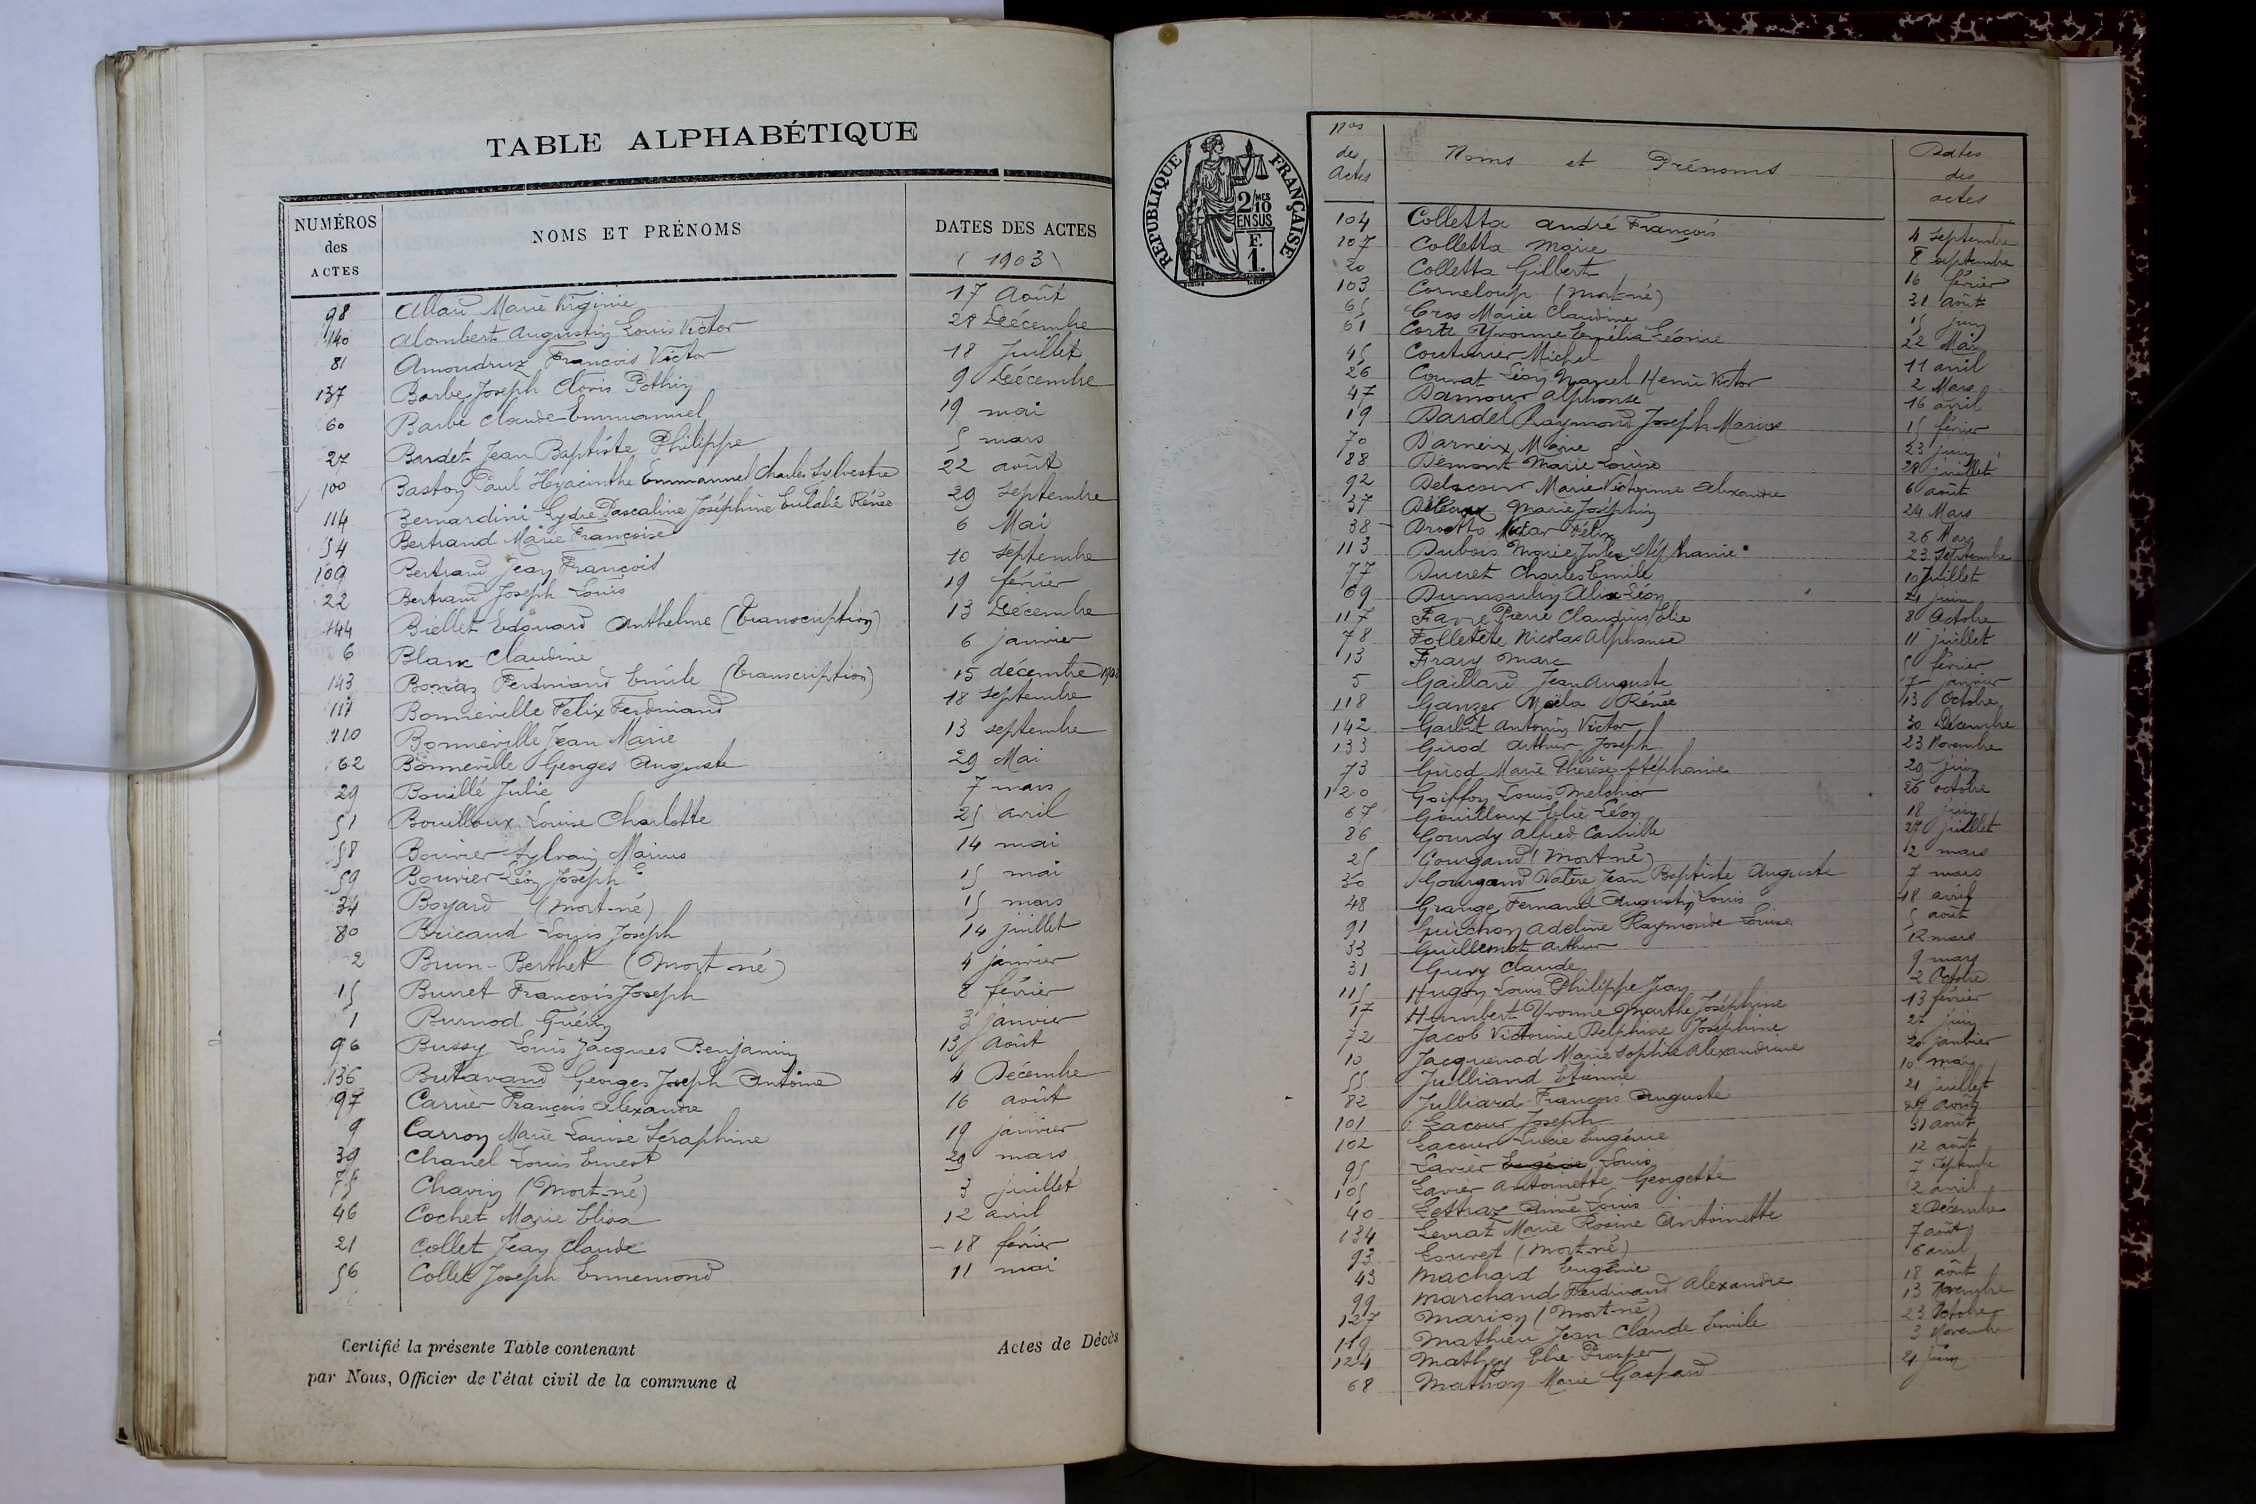 TABLE ALPHABÉTIQUE
NUMÉROS des ACTES NOMS ET PRÉNOMS DATES DES ACTES
(1903)
98 Allard Marie Virginie 17 Août
140 Alombert Augustin Louis Victor 28 Décembre
81 Amoudruz François Victor 18 Juillet
137 Barbe Joseph Clovis Pothin 9 Décembre
60 Barbe Claude Emmanuel 19 mai
27 Bardet Jean Baptiste Philippe 5 mars
100 Baston Paul Hyacinthe Emmanuel Charles Sylvestre 22 août
114 Bernardini Lydie Pascaline Joséphine Eulalie Rénée 29 septembre
54 Bertrand Marie Françoise 6 Mai
109 Bertrand Jean François 10 septembre
22 Bertrand Joseph Louis 19 février
144 Biellet Edouard Anthelme (Transcription) 13 Décembre
6 Blanc Claudine 6 janvier
143 Bonaz Ferdinand Emile (Transcription) 15 décembre
111 Bonneville Félix Ferdinand 18 septembre
110 Bonneville Jean Marie 13 septembre
62 Bonneville Georges Auguste 29 Mai
29 Bouillé Julie 7 mars
51 Bouilloux Louise Charlotte 25 avril
58 Bouvier Sylvain Marius 14 mai
59 Bouvier Léon Joseph 15 mai
34 Boyard (Mort-né) 15 mars
80 Bricaud Louis Joseph 14 juillet
2 Brun-Berthet (Mort-né) 4 janvier
15 Brunet François Joseph 8 février
1 Burnod Guérin 3 janvier
96 Bussy Louis Jacques Benjamin 13 Août
136 Butavand Georges Joseph Antoine 4 Décembre
97 Carrier François Alexandre 16 août
9 Carron Marie Louise Séraphine 19 janvier
39 Chanel Louis Ernest 29 mars
75 Chavin (Mort-né) 3 juillet
46 Cochet Marie Elisa 12 avril
21 Collet Jean Claude 18 février
56 Collet Joseph Ennemond 11 mai
Certifié la présente Table contenant Actes de Décès
par Nous, Officier de l'état civil de la commune d
REPUBLIQUE FRANÇAISE
2/10 MES
EN SUS
F. 1.
Nos des Actes Noms et Prénoms Dates des actes
104 Colletta André François 4 septembre
107 Colletta Marie 8 septembre
20 Colletta Gilbert 16 février
103 Corneloup (mort-né) 31 août
65 Cros Marie Claudine 15 juin
61 Corti Yvonne Emélia Léonie 22 Mai
45 Couturier Michel 11 avril
26 Courat Léon Marcel Henri Victor 2 Mars
47 Damour Alphonse 16 avril
19 Dardel Raymond Joseph Marius 15 février
70 Darneix Marie 23 juin
88 Démont Marie Louise 28 juillet
92 Delacour Marie Victorine Alexandre 6 août
37 Marie Joséphin 24 Mars
38 Drostto Victor Félix 26 Mars
113 Dubois Marie Julie Stéphanie 23 Septembre
77 Ducret Charles Emile 10 Juillet
69 Dumoulin Alix Léon 21 juin
117 Favre Pierre Claudius Elie 8 Octobre
78 Folletête Nicolas Alphonse 11 juillet
13 Frary Marc 5 février
5 Gaillard Jean Auguste 7 janvier
118 Ganzer Rénée 13 Octobre
142 Garbit Antonin Victor 30 Décembre
133 Girod Arthur Joseph 23 Novembre
73 Girod Marie Thérèse Stéphanie 29 juin
120 Goiffon Louis Melchior 26 octobre
67 Gouilloux Elie Léon 18 juin
86 Gourdy Alfred Camille 27 juillet
25 Gourgand (Mort-né) 2 mars
30 Gourgand Valère Jean Baptiste Auguste 7 mars
48 Grange Fernand Augustin Louis 18 avril
91 Guichon Adeline Raymonde Louise 5 août
33 Guillemot Arthur 12 mars
31 Guny Claude 9 mars
115 Hugon Louis Philippe Jean 2 Octobre
17 Humbert Yvonne Marthe Joséphine 13 février
72 Jacob Victorine Delphine Joséphine 27 juin
10 Jacquenod Marie Sophie Alexandrine 20 janvier
55 Julliand Etienne 10 mai
82 Julliard François Auguste 21 juillet
101 Lacour Joseph 29 août
102 Lacour Lucie Eugénie 31 août
95 Lavier Eugénie Louis 12 août
105 Lavier Antoinette Georgette 7 septembre
40 Lettraz Aimé Louis 2 avril
134 Levrat Marie Rosine Antoinette 2 Décembre
93 Louvet (Mort-né) 7 août
43 Machard Eugénie 6 avril
99 Marchand Ferdinand Alexandre 18 août
127 Marion (Mort-né) 13 Novembre
119 Mathieu Jean Claude Emile 23 Octobre
124 Mathey Elie Prosper 3 Novembre
68 Mathon Marie Gaspard 21 juin